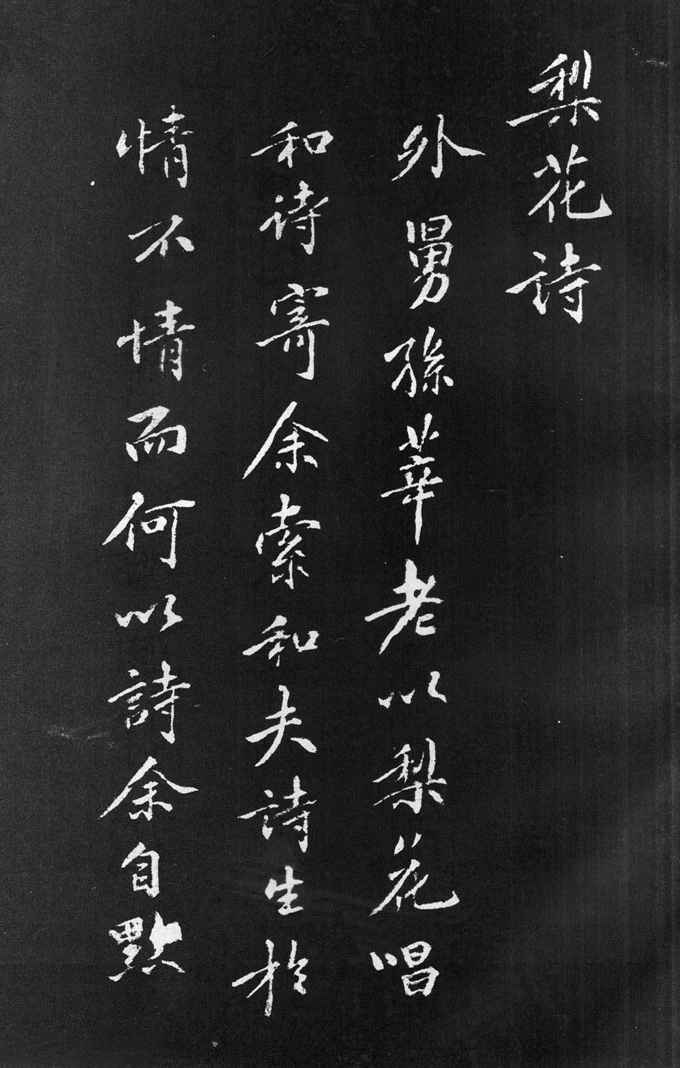 梨花詩
外舅孫莘老以梨花唱
和詩寄余索和夫詩生於
情不情而何以詩余自黙